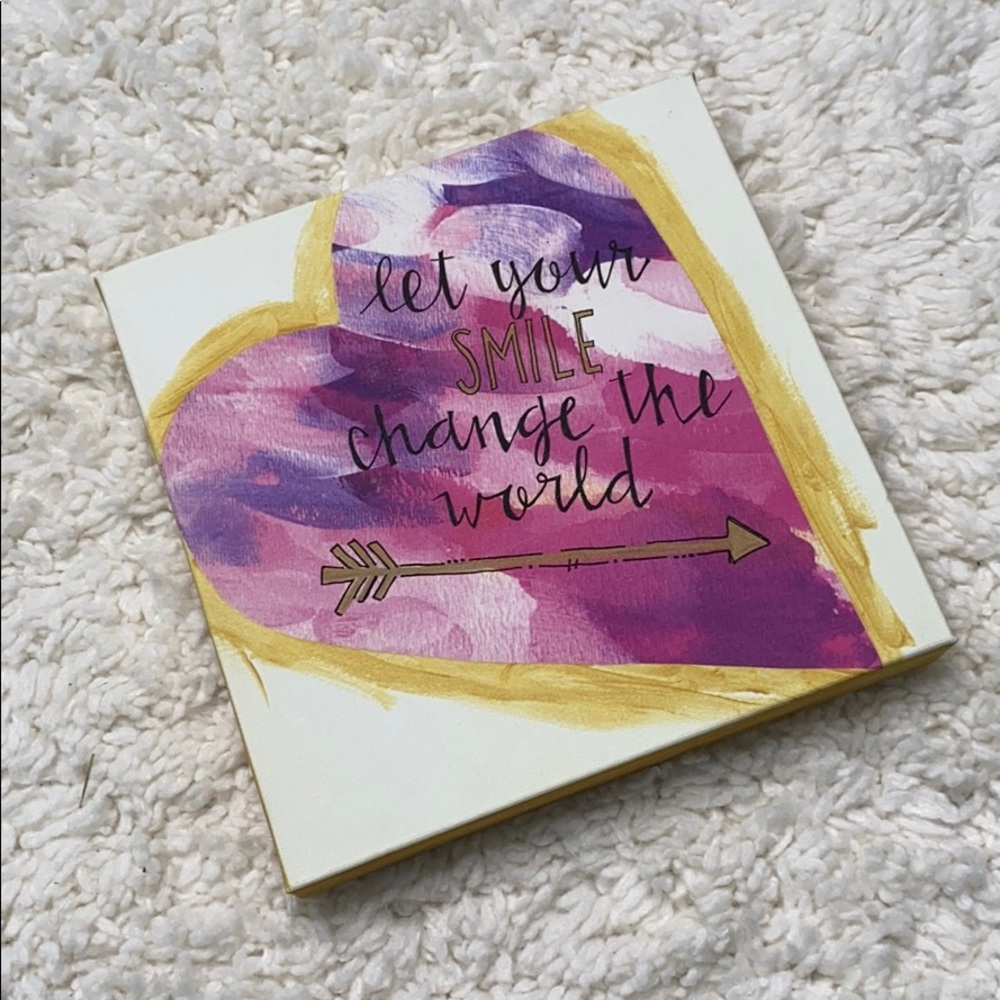 let your
SMILE
change the
world